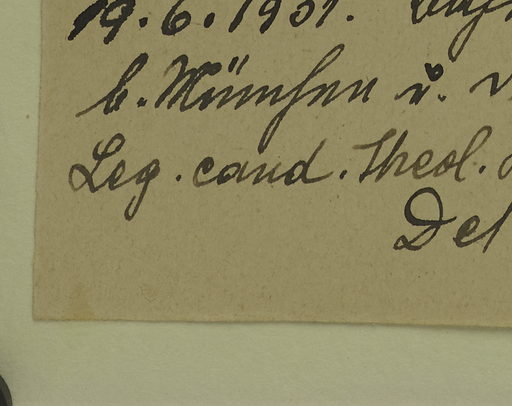 19.6.1931.
b. München u.
Leg. cand. Theol.
Det